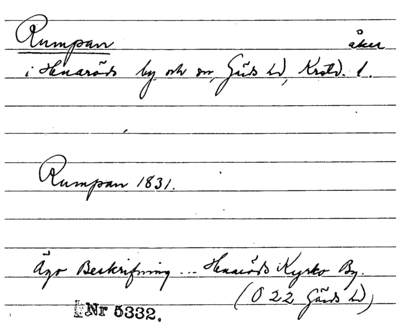 Rumpan åker
i Huaröds by och sn, Gärds hd, Krstd. l.
Rumpan 1831.
Ägo Beskrifning ... Huaröds Kyrko By.
(O 22 Gärds hd)
Nr 5332.